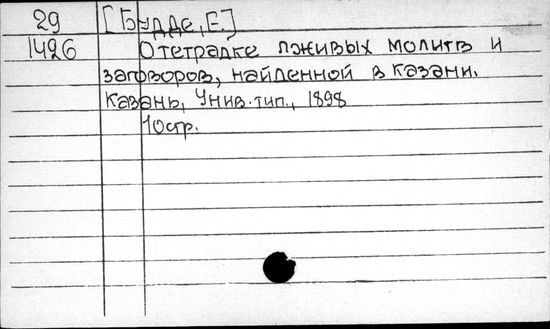 29 [Будде, Е.]
1426 О тетрадке лживых молитв и
заговоров, найденной в Казани.
Казань, Унив. тип., 1898
10 стр.